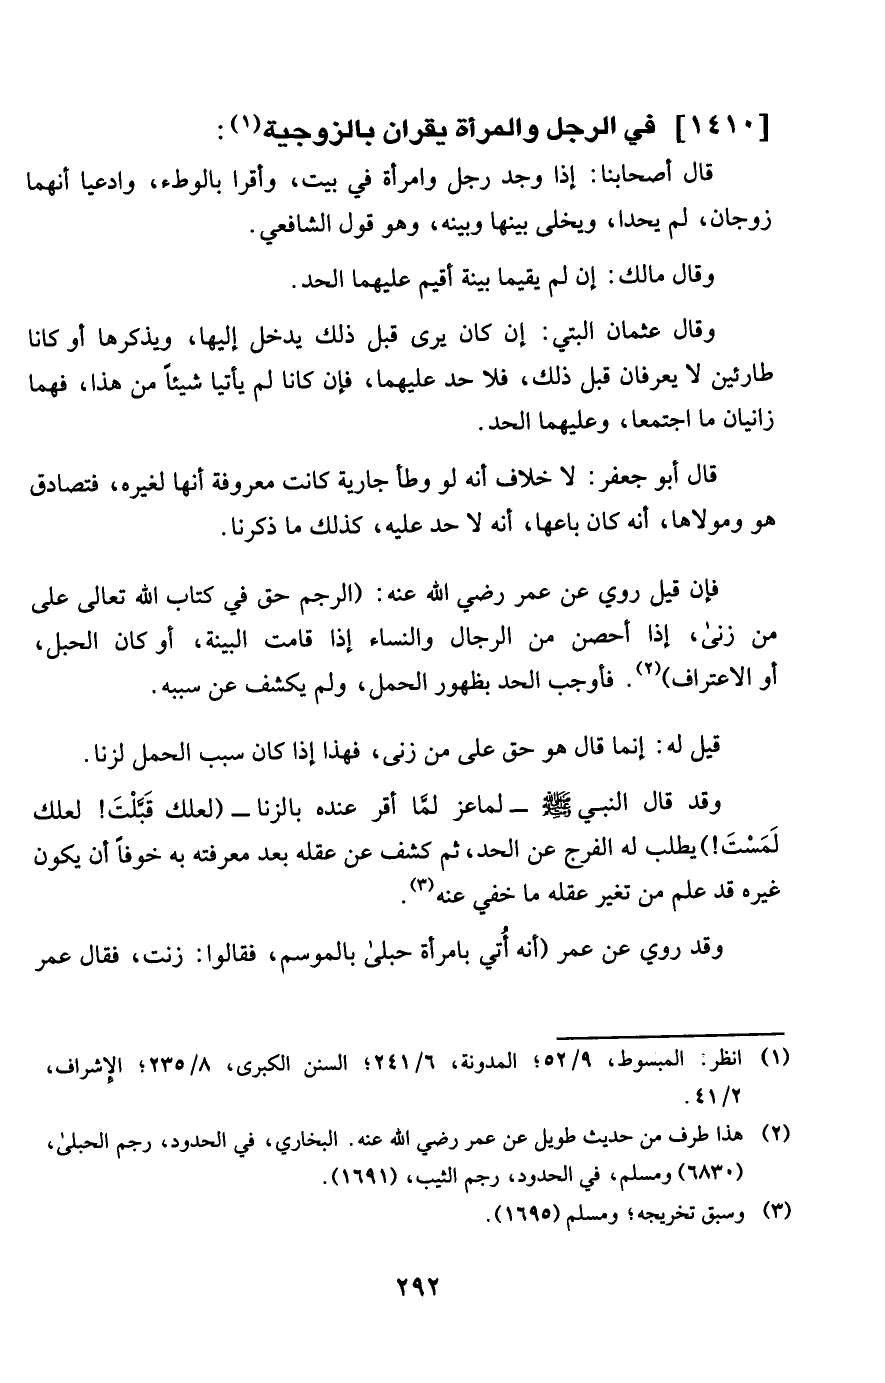 [١٤١٠] في الرجل والمرأة يقران بالزوجية(١):
قال أصحابنا: إذا وجد رجل وامرأة في بيت، وأقرا بالوطء، وادعيا أنهما
زوجان، لم يحدا، ويخلى بينها وبينه، وهو قول الشافعي.
وقال مالك: إن لم يقيما بينة أقيم عليهما الحد.
وقال عثمان البتي: إن كان يرى قبل ذلك يدخل إليها، ويذكرها أو كانا
طارئين لا يعرفان قبل ذلك، فلا حد عليهما، فإن كانا لم يأتيا شيئاً من هذا، فهما
زانيان ما اجتمعا، وعليهما الحد.
قال أبو جعفر: لا خلاف أنه لو وطأ جارية كانت معروفة أنها لغيره، فتصادق
هو ومولاها، أنه كان باعها، أنه لا حد عليه، كذلك ما ذكرنا.
فإن قيل روي عن عمر رضي الله عنه: (الرجم حق في كتاب الله تعالى على
من زنىٰ، إذا أحصن من الرجال والنساء إذا قامت البينة، أو كان الحبل،
أو الاعتراف)(٢). فأوجب الحد بظهور الحمل، ولم يكشف عن سببه.
قيل له: إنما قال هو حق على من زنى، فهذا إذا كان سبب الحمل لزنا.
وقد قال النبي ﷺ ــ لماعز لمَّا أقر عنده بالزنا ــ (لعلك قَبَّلْتَ! لعلك
لَمَسْتَ!) يطلب له الفرج عن الحد، ثم كشف عن عقله بعد معرفته به خوفاً أن يكون
غيره قد علم من تغير عقله ما خفي عنه(٣).
وقد روي عن عمر (أنه أُتي بامرأة حبلىٰ بالموسم، فقالوا: زنت، فقال عمر
(١) انظر: المبسوط، ٥٢/٩؛ المدونة، ٢٤١/٦؛ السنن الكبرى، ٢٣٥/٨؛ الإشراف،
٤١/٢.
(٢) هذا طرف من حديث طويل عن عمر رضي الله عنه. البخاري، في الحدود، رجم الحبلىٰ،
(٦٨٣٠) ومسلم، في الحدود، رجم الثيب، (١٦٩١).
(٣) وسبق تخريجه؛ ومسلم (١٦٩٥).
٢٩٢